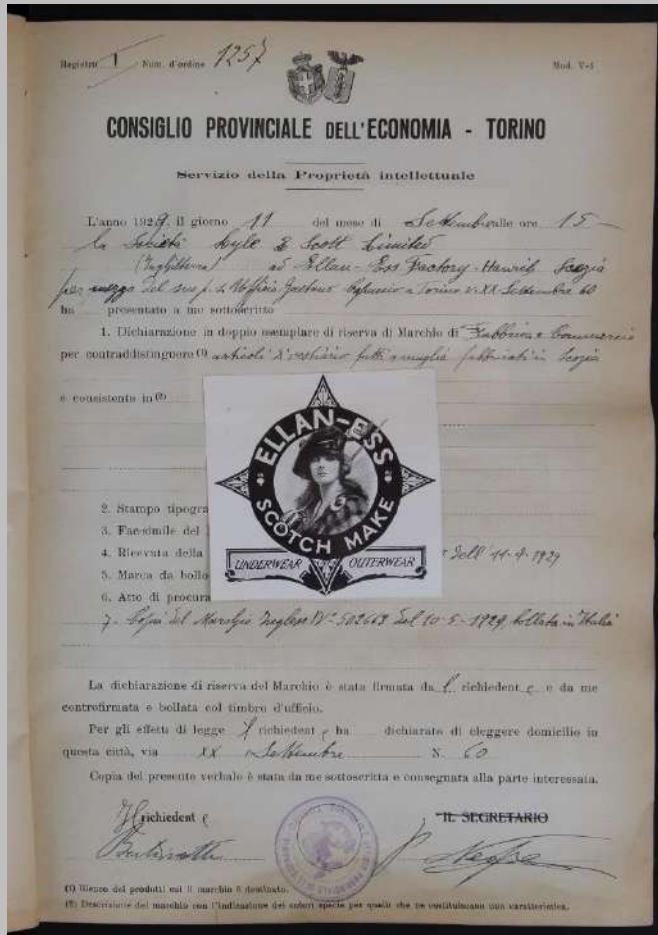 Registro 1 Num. d'ordine 1257 Mod. V-4
CONSIGLIO PROVINCIALE DELL'ECONOMIA - TORINO
Servizio della Proprietà intellettuale
L'anno 1929, il giorno 11 del mese di Settembre alle ore 15
la Società Lyle & Scott Limited
(Inghilterra) ad Ellan-Ess Factory-Hawick Scozia
per mezzo del suo Ufficio a Torino v. XX Settembre 60
ha presentato a me sottoscritto
1. Dichiarazione in doppio esemplare di riserva di Marchio di Fabbrica e Commercio
per contraddistinguere (1) articoli di vestiario fatti a maglia fabbricati in Scozia
e consistente in (2)
ELLAN-ESS
SCOTCH MAKE
UNDERWEAR OUTERWEAR
2. Stampo tipogra
3. Fac-simile del
4. Ricevuta della dell' 11-9-1929
5. Marca da bollo
6. Atto di procura
7. Copia del Marchio Inglese N° 502663 del 10-5-1929, bollata in Italia
La dichiarazione di riserva del Marchio è stata firmata da l richiedent e e da me
controfirmata e bollata col timbro d'ufficio.
Per gli effetti di legge l richiedent e ha dichiarato di eleggere domicilio in
questa città, via XX Settembre N. 60
Copia del presente verbale è stata da me sottoscritta e consegnata alla parte interessata.
Il richiedent e IL SEGRETARIO
(1) Elenco dei prodotti cui il marchio è destinato.
(2) Descrizione del marchio con l'indicazione dei colori specie per quello che ne costituiscano una caratteristica.